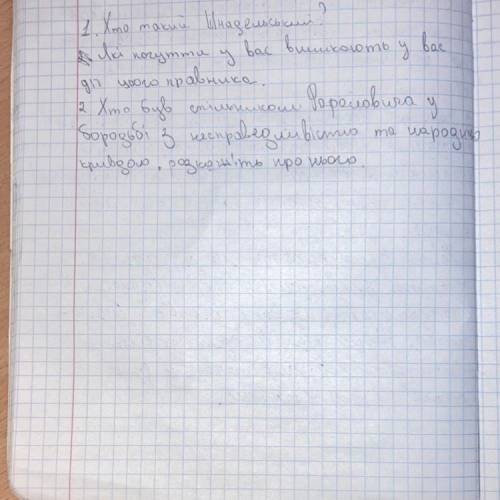 1. Хто такий Шнадельський?
2. Які почуття у вас викликають у вас
дії цього правника.
2 Хто був спільником Рафаловича у
бородьбі з несправедливістю та народною
кривдою, розкажіть про нього.